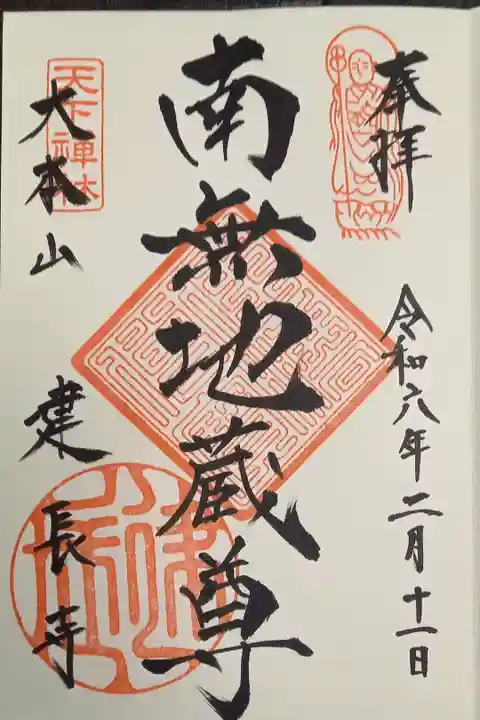 奉拝
令和六年二月十一日
南無地蔵尊
大本山 建長寺
天下禅林